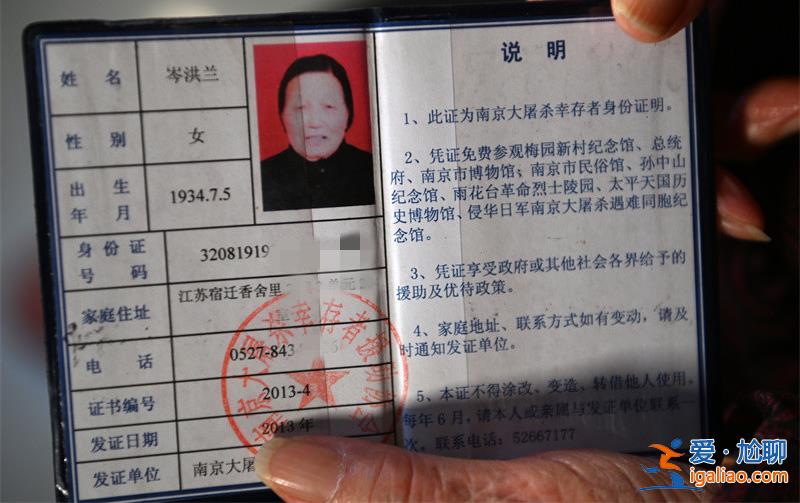 姓 名 岑洪兰
性 别 女
出 生
年 月
1934.7.5
身份证
号 码
32081919
家庭住址 江苏宿迁香舍里 单元
电 话 0527-84
证书编号 2013-4
发证日期 2013年
发证单位 南京大屠
说 明
1、此证为南京大屠杀幸存者身份证明。
2、凭证免费参观梅园新村纪念馆、总统
府、南京市博物馆;南京市民俗馆、孙中山
纪念馆、雨花台革命烈士陵园、太平天国历
史博物馆、侵华日军南京大屠杀遇难同胞纪
念馆。
3、凭证享受政府或其他社会各界给予的
援助及优待政策。
4、家庭地址、联系方式如有变动,请及
时通知发证单位。
5、本证不得涂改、变造、转借他人使用。
每年6月,请本人或亲属与发证单位联系一
次。联系电话:52667177
爱·尬聊
igaliao.com